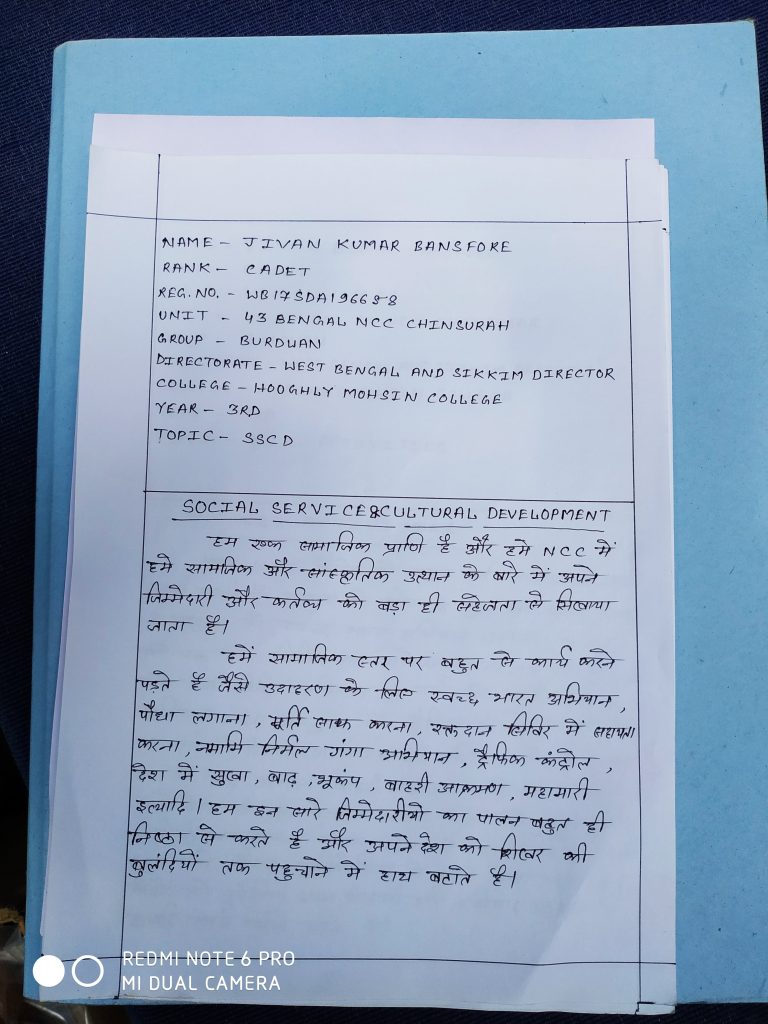 NAME - JIVAN KUMAR BANSFORE
RANK - CADET
REG. NO. - WB17SDA196658
UNIT - 43 BENGAL NCC CHINSURAH
GROUP - BURDWAN
DIRECTORATE - WEST BENGAL AND SIKKIM DIRECTOR
COLLEGE - HOOGHLY MOHSIN COLLEGE
YEAR - 3RD
TOPIC - SSCD
SOCIAL SERVICE & CULTURAL DEVELOPMENT
हम एक सामाजिक प्राणि है और हमे NCC में
हमे सामजिक और सांस्कृतिक उत्थान के बारे में अपने
जिम्मेदारी और कर्तव्य को बड़ा ही सहेजता से सिखाया
जाता है।
हमें सामाजिक स्तर पर बहुत से कार्य करने
पड़ते है जैसे उदाहरण के लिए स्वच्छ भारत अभियान,
पौधा लगाना, मूर्ति साफ करना, रक्तदान शिविर में सहायता
करना, नमामि निर्मल गंगा अभियान, ट्रैफिक कंट्रोल,
देश में सुखा, बाढ़, भूकंप, बाहरी आक्रमण, महामारी
इत्यादि। हम इन सारे जिम्मेदारीयो का पालन बहुत ही
निष्ठा से करते है और अपने देश को शिखर की
बुलंदियों तक पहुचाने में हाथ बटाते है।
REDMI NOTE 6 PRO
MI DUAL CAMERA